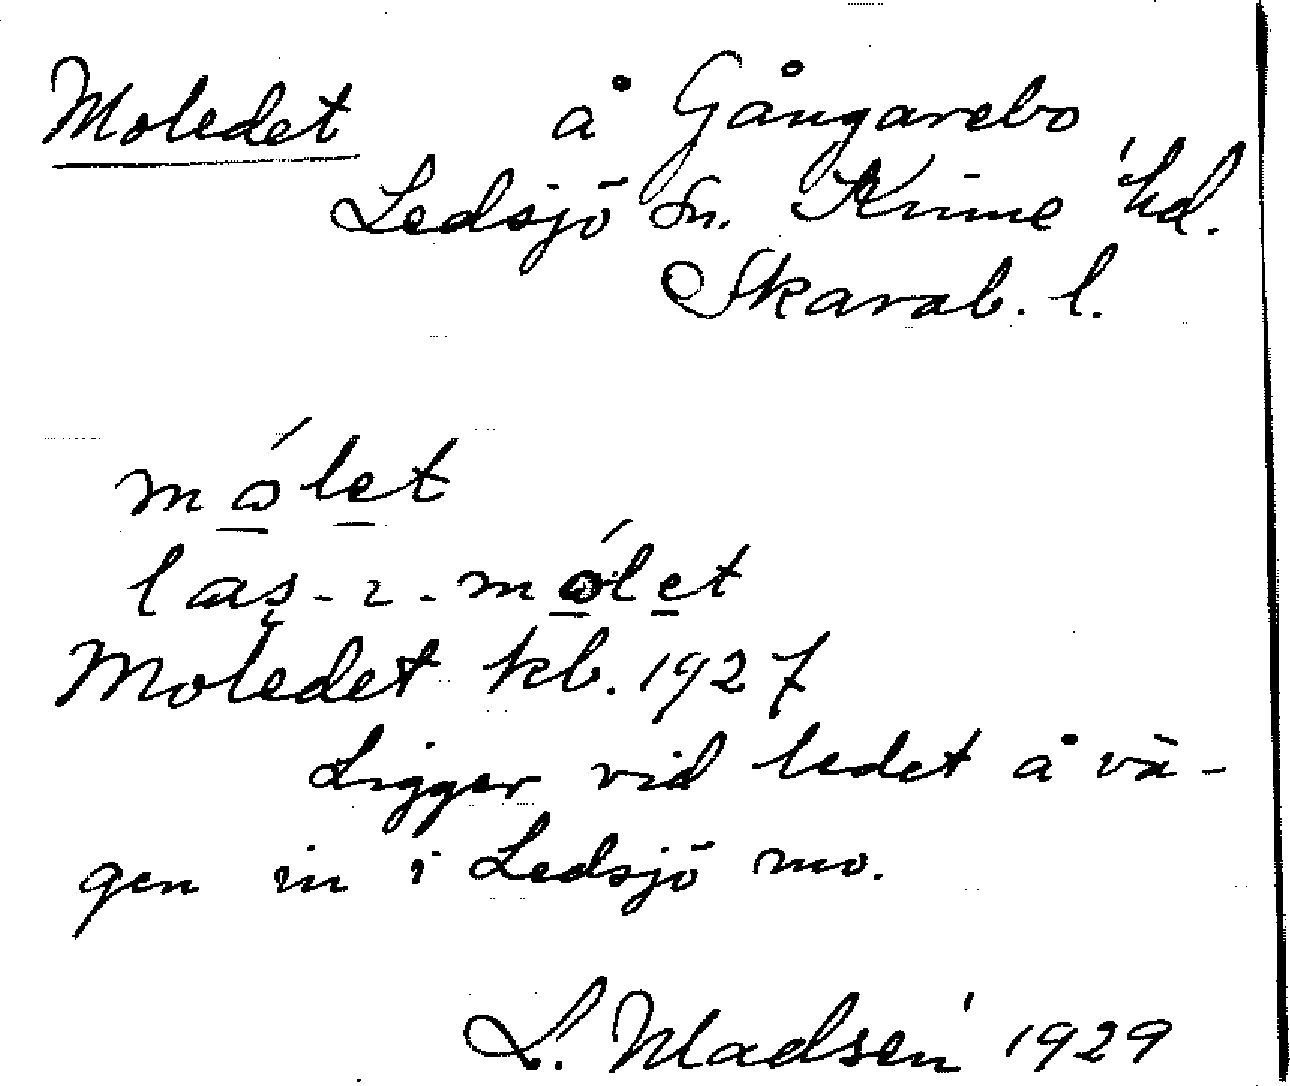 Moledet å Gångarebo
Ledsjö Sn. Kinne hd.
Skarab. l.
mólet
las-ı-mólet
Moledet kb. 1927
Ligger vid ledet å vä-
gen in i Ledsjö mo.
L. Madsén 1929